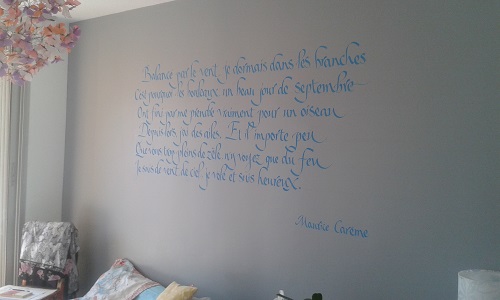 Balancé par le vent, je dormais dans les branches
C'est pourquoi les bouleaux, un beau jour de septembre
Ont fini par me prendre vraiment pour un oiseau
Depuis lors, j'ai des ailes. Et il importe peu
Que vous trop pleins de zèle n'y voyez que du feu
Je suis de vent de ciel je vole et suis heureux.
Maurice Carême